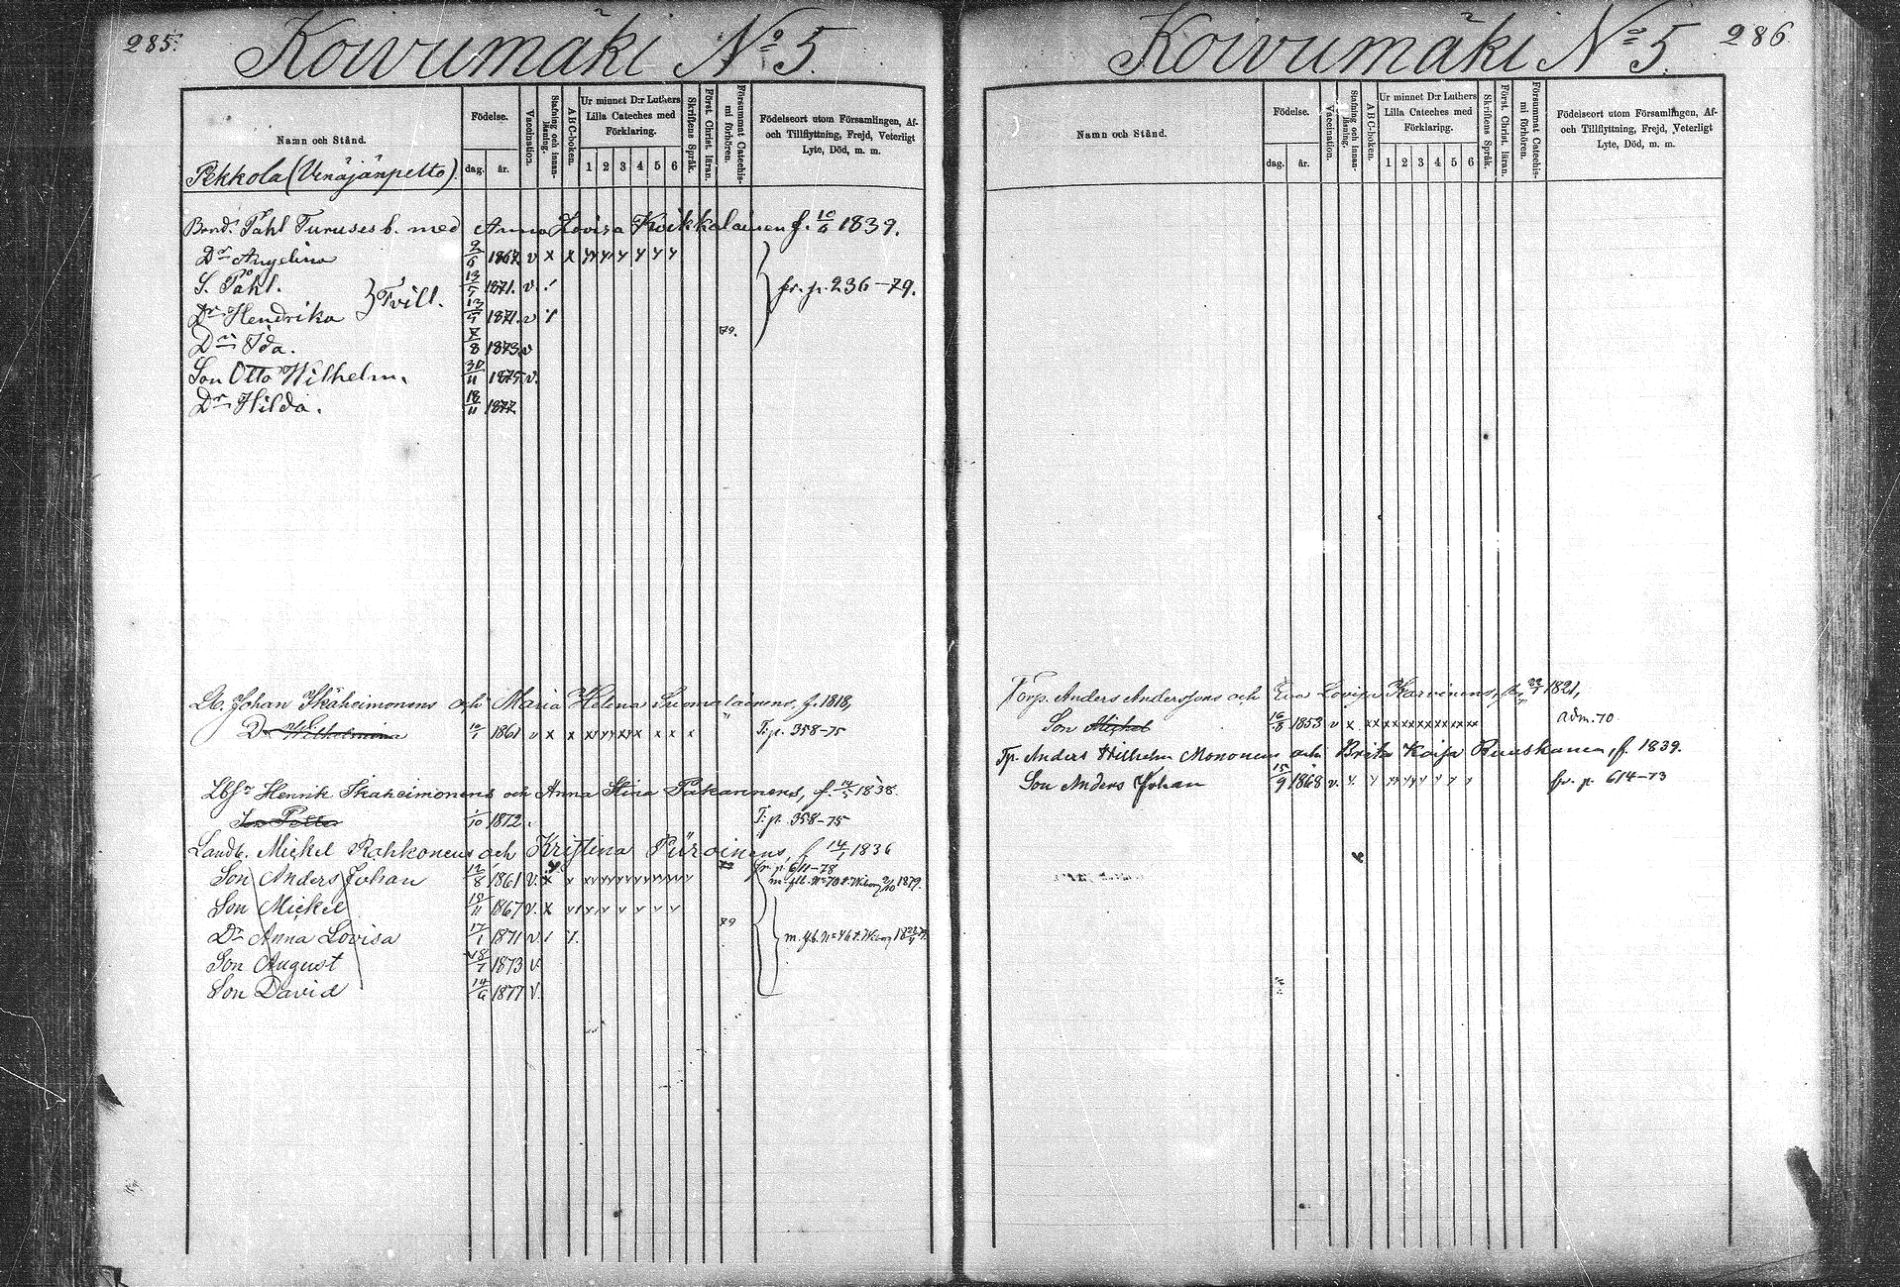 285.
Koivumäki No 5.
Namn och Stånd.
Födelse.
dag.
år.
Vaccination.
Stafning och innan-läsning.
ABC-boken.
Ur minnet D:r Luthers
Lilla Cateches med
Förklaring.
1 2 3 4 5 6
Skriftens Språk.
Först. Christ. läran.
Försummat Catechis-
mi förhören.
Födelseort utom Församlingen, Af-
och Tillflyttning, Frejd, Veterligt
Lyte, Död, m. m.
Pekkola (Venäjänpelto).
Bond. Påhl Turuses b. med Anna Lovisa Kuikkalainen f. 10/6 1839.
Dr Angelina 2/6 1867. v x x
S. Påhl. 13/5 1871. v.
Tvill. fr. p. 236-79.
Dr Hendrika 13/5 1871. v
79.
Dr Ida. 7/8 1873. v
Son Otto Wilhelm. 30/11 1875. v.
Dr Hilda. 18/11 1877
Johan Ikäheimonens och Maria Helena Suomalainens, f. 1818,
Dr Wilhelmina 1861 v x x T. p. 358-75
Henrik Ikäheimonens och Anna Stina Pakarinens, f. 1838.
Son Petter 1/10 1872. T. p. 358-75
Landb. Mickel Rahkonens och Kristina Püroinens, f. 14/1 1836
Son Anders Johan 12/8 1861 v. x fr. p. 611-78
1879.
Son Mickel 1867 v. x
79
Dr Anna Lovisa 17/1 1871 v.
Son August 18/7 1873 v.
Son David 14/6 1877 v.
Koivumäki No 5.
286
Namn och Stånd.
Födelse.
dag.
år.
Vaccination.
Stafning och innan-läsning.
ABC-boken.
Ur minnet D:r Luthers
Lilla Cateches med
Förklaring.
1 2 3 4 5 6
Skriftens Språk.
Först. Christ. läran.
Försummat Catechis-
mi förhören.
Födelseort utom Församlingen, Af-
och Tillflyttning, Frejd, Veterligt
Lyte, Död, m. m.
Torp. Anders Anderssons och Eva Lovisa Karvinens, 1821,
Son Michel 16/8 1853 v x adm. 70
Tp. Anders Wilhelm Mononens och Brita Kaisa Ruuskanen, f. 1839.
Son Anders Johan 15/9 1868 v. fr. p. 614-73